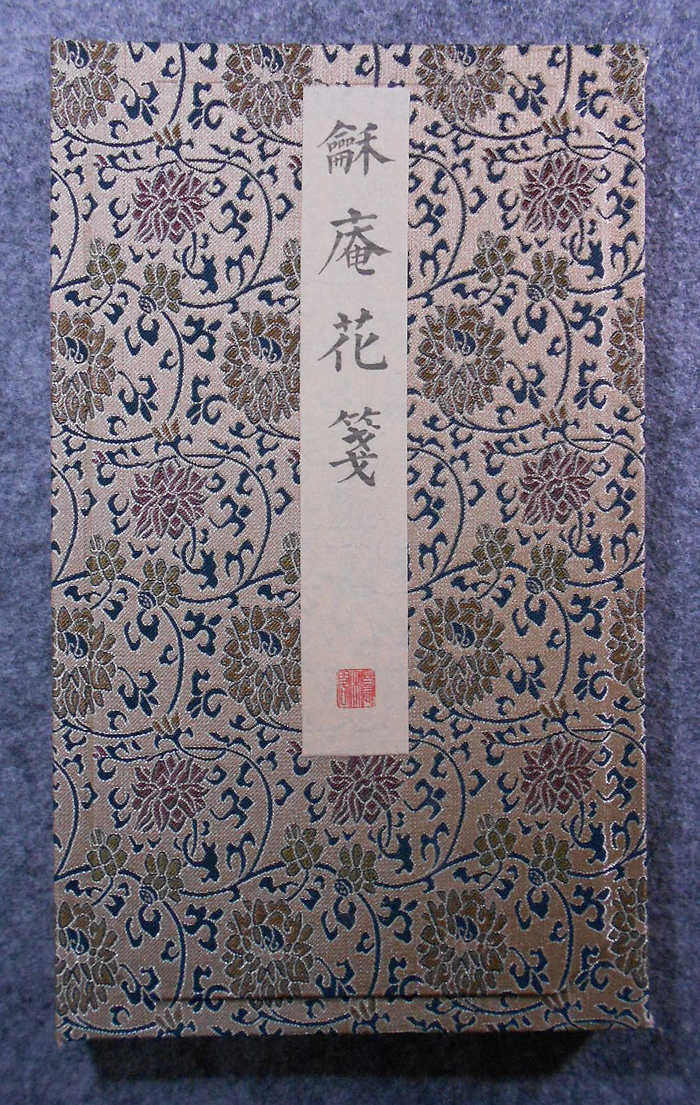 龢庵花箋